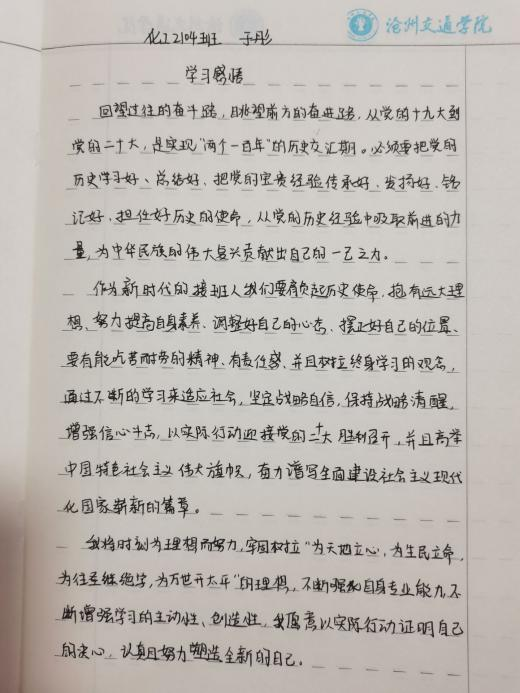 沧州交通学院
化工2104班 于彤
学习感悟
回望过往的奋斗路,眺望前方的奋进路,从党的十九大到
党的二十大,是实现"两个一百年"的历史交汇期。必须要把党的
历史学习好、总结好,把党的宝贵经验传承好、发扬好,铭
记好、担任好历史的使命,从党的历史经验中吸取前进的力
量,为中华民族的伟大复兴贡献出自己的一己之力。
作为新时代的接班人我们要肩负起历史使命,抱有远大理
想、努力提高自身素养、调整好自己的心态、摆正好自己的位置、
要有能吃苦耐劳的精神、有责任感、并且树立终身学习的观念,
通过不断的学习来适应社会,坚定战略自信,保持战略清醒,
增强信心斗志,以实际行动迎接党的二十大胜利召开,并且高举
中国特色社会主义伟大旗帜,奋力谱写全面建设社会主义现代
化国家崭新的篇章。
我将时刻为理想而努力,牢固树立"为天地立心,为生民立命,
为往圣继绝学,为万世开太平"的理想,不断强化自身专业能力,不
断增强学习的主动性、创造性,我愿意以实际行动证明自己
的决心,认真且努力塑造全新的自己。